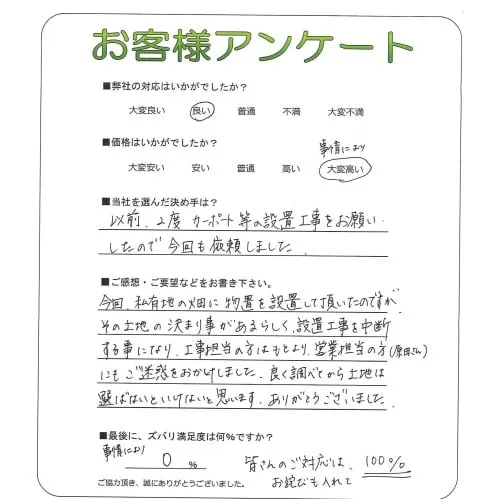 お客様アンケート
■弊社の対応はいかがでしたか?
大変良い 良い 普通 不満 大変不満
■価格はいかがでしたか?
事情により
大変安い 安い 普通 高い 大変高い
■当社を選んだ決め手は?
以前、2度カーポート等の設置工事をお願い
したので今回も依頼しました。
■ご感想・ご要望などをお書き下さい。
今回、私有地の畑に物置を設置して頂いたのですが
その土地の決まり事があるらしく、設置工事を中断
する事になり、工事担当の方はもとより、営業担当の方(原田さん)
にもご迷惑をおかけしました。良く調べてから土地は
選ばないといけないと思います。ありがとうございました。
■最後に、ズバリ満足度は何%ですか?
事情により
0 %
皆さんのご対応は、100%
お詫びも入れて
ご協力頂き、誠にありがとうございました。